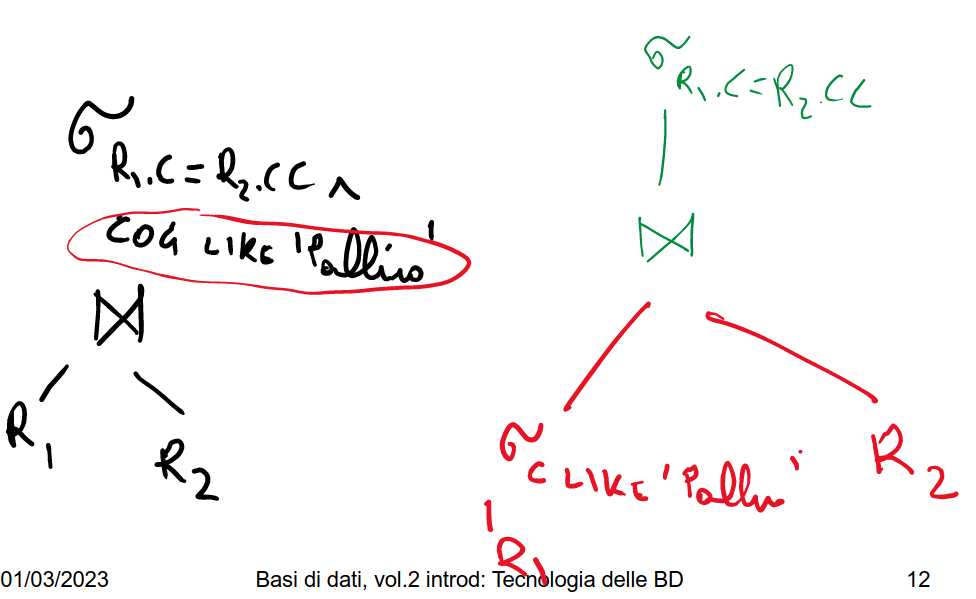 σ R₁.C=R₂.CC ∧
COG LIKE 'Pallino'
⋈
R₁
R₂
σ R₁.C=R₂.CC
⋈
σ C LIKE 'Pallino'
R₂
R₁
01/03/2023 Basi di dati, vol.2 introd: Tecnologia delle BD 12